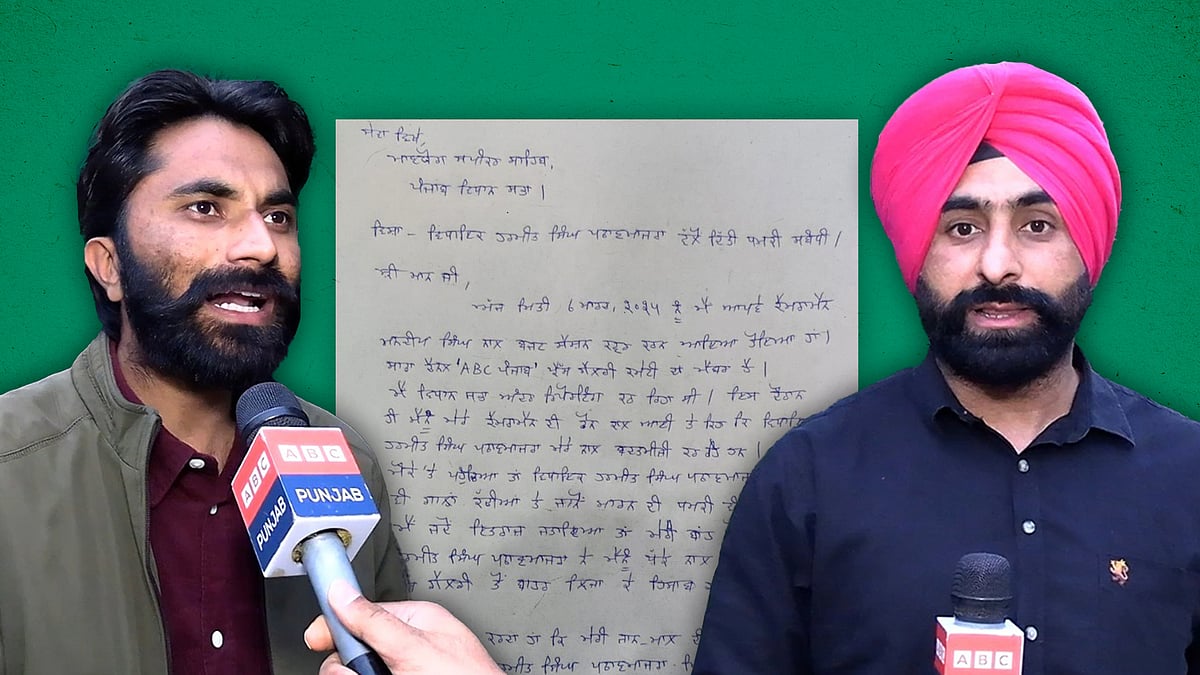 ਸੇਵਾ ਵਿਖੇ,
ਮਾਣਯੋਗ ਸਪੀਕਰ ਸਾਹਿਬ,
ਪੰਜਾਬ ਵਿਧਾਨ ਸਭਾ।
ਵਿਸ਼ਾ - ਵਿਧਾਇਕ ਹਰਮੀਤ ਸਿੰਘ ਪਠਾਣਮਾਜਰਾ ਵੱਲੋਂ ਦਿੱਤੀ ਧਮਕੀ ਸਬੰਧੀ।
ਸ੍ਰੀ ਮਾਨ ਜੀ,
ਅੱਜ ਮਿਤੀ ਮਾਰਚ, ਨੂੰ ਮੈਂ ਆਪਣੇ ਕੈਮਰਾਮੈਨ
ਮਨਦੀਪ ਸਿੰਘ ਨਾਲ ਬਜਟ ਸੈਸ਼ਨ ਕਵਰ ਕਰਨ ਆਇਆ ਹੋਇਆ ਹਾਂ।
ਸਾਡਾ ਚੈਨਲ 'ABC ਪੰਜਾਬ' ਪ੍ਰੈੱਸ ਗੈਲਰੀ ਕਮੇਟੀ ਦਾ ਮੈਂਬਰ ਹੈ।
ਮੈਂ ਵਿਧਾਨ ਸਭਾ ਅੰਦਰ ਰਿਪੋਰਟਿੰਗ ਕਰ ਰਿਹਾ ਸੀ। ਇਸ ਦੌਰਾਨ
ਹੀ ਮੈਨੂੰ ਮੇਰੇ ਕੈਮਰਾਮੈਨ ਦੀ ਫੋਨ ਕਾਲ ਆਈ ਤੇ ਕਿਹਾ ਕਿ
ਹਰਮੀਤ ਸਿੰਘ ਪਠਾਣਮਾਜਰਾ ਮੇਰੇ ਨਾਲ ਬਦਤਮੀਜ਼ੀ ਕਰ ਰਹੇ ਹਨ।
ਮੌਕੇ ਤੇ ਪਹੁੰਚਿਆ ਤਾਂ ਵਿਧਾਇਕ ਹਰਮੀਤ ਸਿੰਘ
ਦੀ ਗਾਲਾਂ ਕੱਢੀਆਂ ਤੇ ਜਾਨੋਂ ਮਾਰਨ ਦੀ ਧਮਕੀ
ਮੈਂ ਜਦੋਂ ਇਤਰਾਜ਼ ਜਤਾਇਆ ਤਾਂ ਮੇਰੀ ਬਾਂਹ
ਸਿੰਘ ਪਠਾਣਮਾਜਰਾ ਨੇ ਮੈਨੂੰ ਧੱਕੇ ਨਾਲ
ਗੈਲਰੀ ਤੋਂ ਬਾਹਰ
ਕਰਦਾ ਹਾਂ ਕਿ ਮੇਰੀ ਜਾਨ-ਮਾਲ ਦੀ
ਸਿੰਘ ਪਠਾਣਮਾਜਰਾ
ABC
ABC
PUNJAB
PUNJAB
ABC